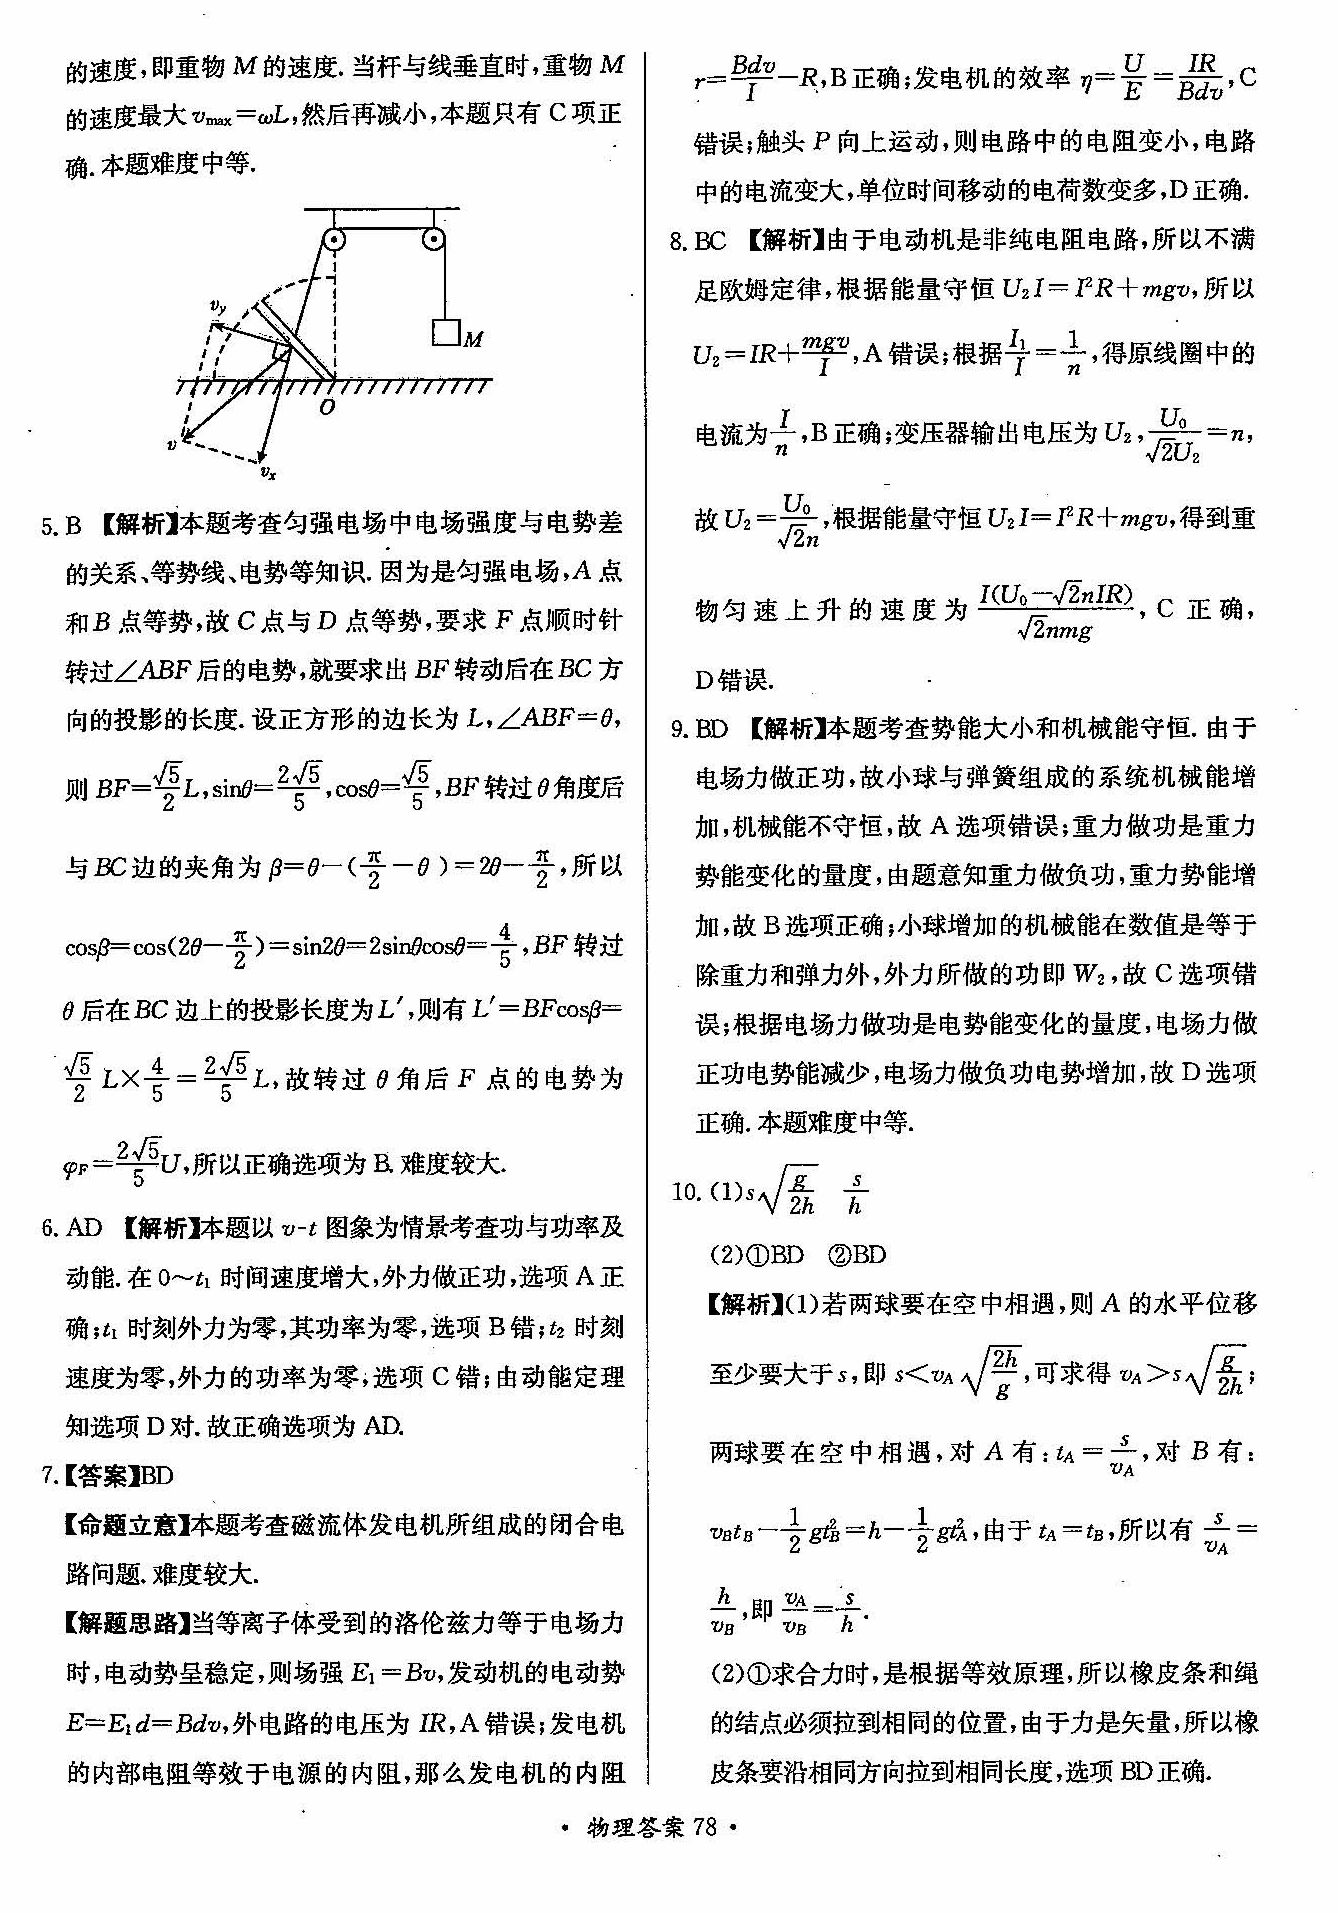 的速度,即重物 M 的速度. 当杆与线垂直时,重物 M
的速度最大 vmax=ωL,然后再减小,本题只有 C 项正
确. 本题难度中等.
vy
M
O
v
vx
5. B 【解析】本题考查匀强电场中电场强度与电势差
的关系、等势线、电势等知识. 因为是匀强电场,A 点
和 B 点等势,故 C 点与 D 点等势,要求 F 点顺时针
转过∠ABF 后的电势,就要求出 BF 转动后在 BC 方
向的投影的长度. 设正方形的边长为 L,∠ABF=θ,
则 BF=√5/2 L,sinθ=2√5/5,cosθ=√5/5,BF 转过 θ 角度后
与 BC 边的夹角为 β=θ-(π/2-θ)=2θ-π/2,所以
cosβ=cos(2θ-π/2)=sin2θ=2sinθcosθ=4/5,BF 转过
θ 后在 BC 边上的投影长度为 L′,则有 L′=BFcosβ=
√5/2 L×4/5=2√5/5 L,故转过 θ 角后 F 点的电势为
φF=2√5/5 U,所以正确选项为 B. 难度较大.
6. AD 【解析】本题以 v-t 图象为情景考查功与功率及
动能. 在 0~t₁ 时间速度增大,外力做正功,选项 A 正
确;t₁ 时刻外力为零,其功率为零,选项 B 错;t₂ 时刻
速度为零,外力的功率为零,选项 C 错;由动能定理
知选项 D 对. 故正确选项为 AD.
7.【答案】BD
【命题立意】本题考查磁流体发电机所组成的闭合电
路问题. 难度较大.
【解题思路】当等离子体受到的洛伦兹力等于电场力
时,电动势呈稳定,则场强 E₁=Bv,发动机的电动势
E=E₁d=Bdv,外电路的电压为 IR,A 错误;发电机
的内部电阻等效于电源的内阻,那么发电机的内阻
r=Bdv/I-R,B 正确;发电机的效率 η=U/E=IR/Bdv,C
错误;触头 P 向上运动,则电路中的电阻变小,电路
中的电流变大,单位时间移动的电荷数变多,D 正确.
8. BC 【解析】由于电动机是非纯电阻电路,所以不满
足欧姆定律,根据能量守恒 U₂I=I²R+mgv,所以
U₂=IR+mgv/I,A 错误;根据 I₁/I=1/n,得原线圈中的
电流为 I/n,B 正确;变压器输出电压为 U₂,U₀/√2U₂=n,
故 U₂=U₀/√2n,根据能量守恒 U₂I=I²R+mgv,得到重
物匀速上升的速度为 I(U₀-√2nIR)/√2nmg,C 正确,
D 错误.
9. BD 【解析】本题考查势能大小和机械能守恒. 由于
电场力做正功,故小球与弹簧组成的系统机械能增
加,机械能不守恒,故 A 选项错误;重力做功是重力
势能变化的量度,由题意知重力做负功,重力势能增
加,故 B 选项正确;小球增加的机械能在数值是等于
除重力和弹力外,外力所做的功即 W₂,故 C 选项错
误;根据电场力做功是电势能变化的量度,电场力做
正功电势能减少,电场力做负功电势增加,故 D 选项
正确. 本题难度中等.
10. (1)s√(g/2h) s/h
(2)①BD ②BD
【解析】(1)若两球要在空中相遇,则 A 的水平位移
至少要大于 s,即 s<vA√(2h/g),可求得 vA>s√(g/2h);
两球要在空中相遇,对 A 有:tA=s/vA,对 B 有:
vBtB-1/2 gtB²=h-1/2 gtA²,由于 tA=tB,所以有 s/vA=
h/vB,即 vA/vB=s/h.
(2)①求合力时,是根据等效原理,所以橡皮条和绳
的结点必须拉到相同的位置,由于力是矢量,所以橡
皮条要沿相同方向拉到相同长度,选项 BD 正确.
· 物理答案 78 ·